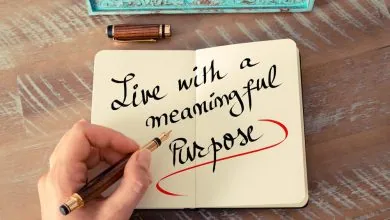 Live with a
meaningful
Purpose